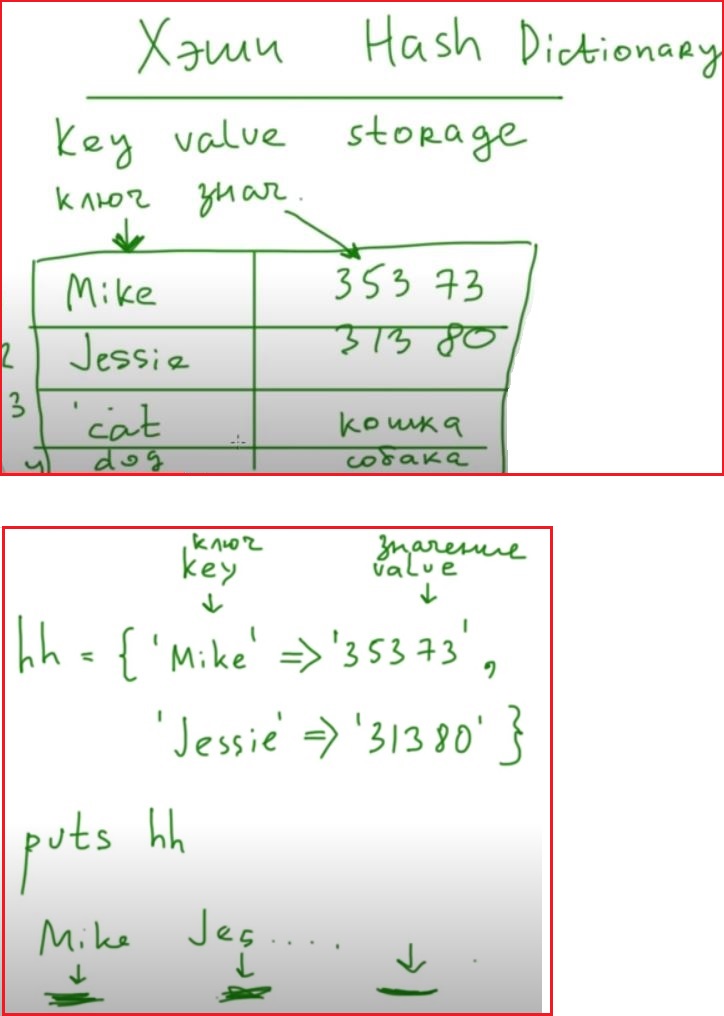 Хэши Hash Dictionary
Key value storage
ключ знач.
Mike 353 73
2 Jessie 313 80
3 'cat кошка
4) dog собака
ключ значение
key value
hh = { 'Mike' => '35373',
'Jessie' => '31380' }
puts hh
Mike Jes....